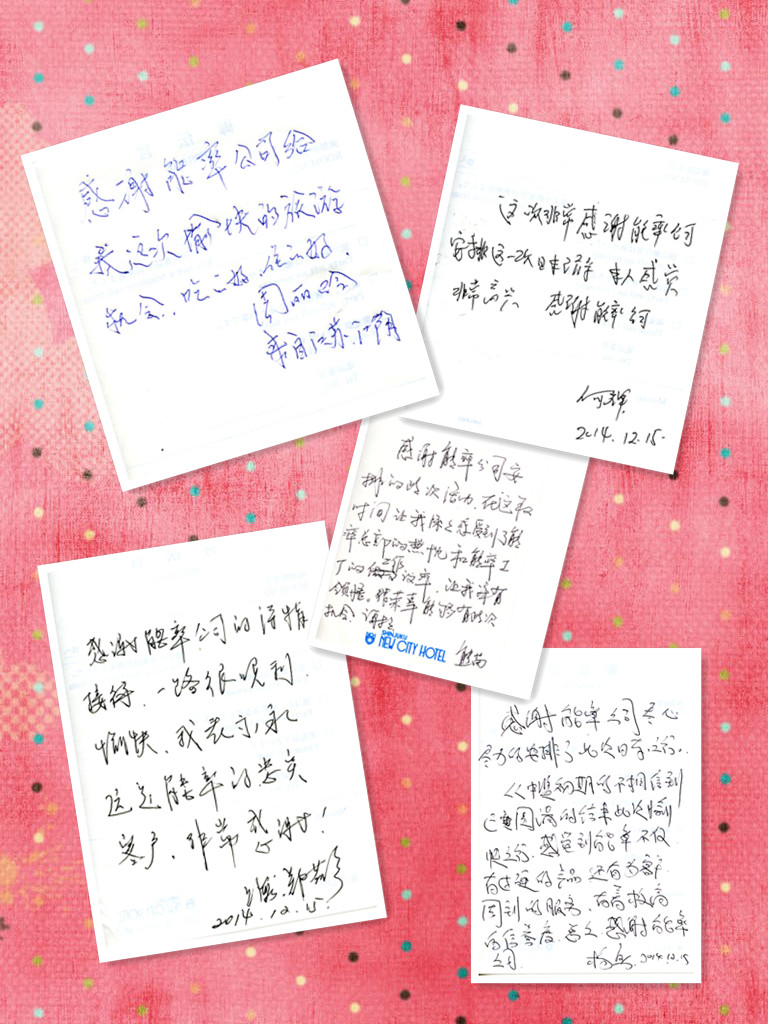 感谢能率公司给
我这次愉快的旅游
机会，吃之好，住之好，
周丽
来自江苏江阴
这次非常感谢能率公司
安排这一次日本之旅 本人感觉
非常高兴 感谢能率公司
何辉
2014.12.15.
感谢能率公司安
排的此次活动，在这段
时间让我感受到了能
率总部的热忱和能率工
厂的 效率，让我深有
领悟。很荣幸能够有此次
机会，谢谢
SHINJUKU
NEW CITY HOTEL
感谢能率公司的深情
接待，一路很顺利，
愉快，我表示永
远是能率的忠实
客户，非常感谢！
2014.12.15.
感谢能率公司尽心
尽力的安排了此次日本之行。
从中选初期的不相信到
圆满的结束此次
之行，感觉到能率不仅
有过硬的产品 还有为客户
周到的服务，
的信誉度，总之 感谢能率
公司 2014.12.15